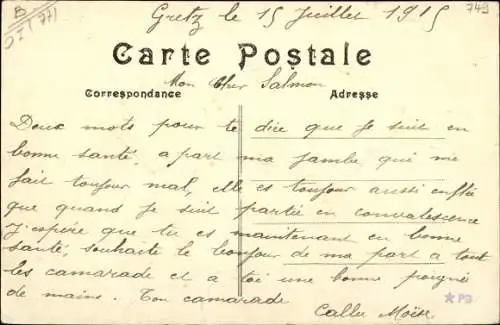 B
DI (77)
749
Gretz le 15 Juillet 1915
Carte Postale
Mon Cher Salmon
Correspondance
Adresse
Deux mots pour te dire que Je suit en
bonne santé, a part ma Jambe qui me
fait toujour mal, elle es toujour aussi enflée
que quand Je suit partie en convalescence
J'espére que tu es maintenant en bonne
santé, souhaite le bonjour de ma part a tout
les camarade et a toi une bonne poigné
de mains. Ton camarade
Calle Moïse
PB